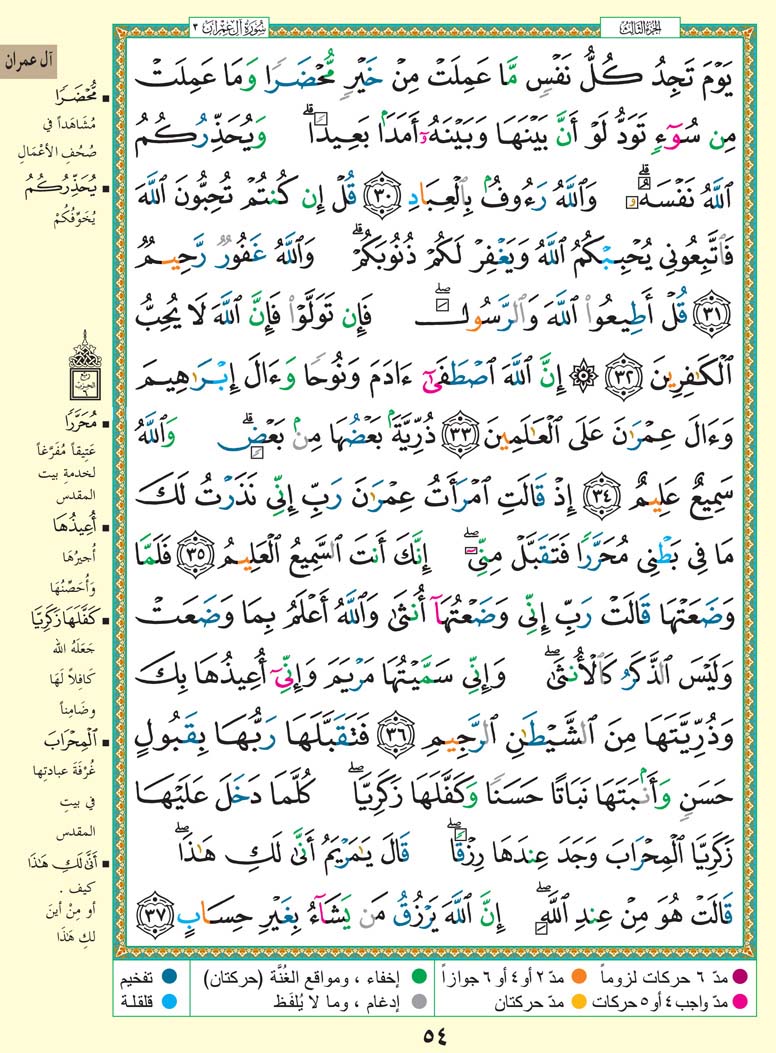 سُورَةُ آلِ عِمْرَان ٣
الجُزءُ الثَّالِث
يَوْمَ تَجِدُ كُلُّ نَفْسٍ مَّا عَمِلَتْ مِنْ خَيْرٍ مُّحْضَرًا وَمَا عَمِلَتْ
مِن سُوٓءٍ تَوَدُّ لَوْ أَنَّ بَيْنَهَا وَبَيْنَهُۥٓ أَمَدَۢا بَعِيدًا ۗ وَيُحَذِّرُكُمُ
ٱللَّهُ نَفْسَهُۥ ۗ وَٱللَّهُ رَءُوفُۢ بِٱلْعِبَادِ ﴿٣٠﴾ قُلْ إِن كُنتُمْ تُحِبُّونَ ٱللَّهَ
فَٱتَّبِعُونِى يُحْبِبْكُمُ ٱللَّهُ وَيَغْفِرْ لَكُمْ ذُنُوبَكُمْ ۗ وَٱللَّهُ غَفُورٌ رَّحِيمٌ
﴿٣١﴾ قُلْ أَطِيعُوا۟ ٱللَّهَ وَٱلرَّسُولَ ۖ فَإِن تَوَلَّوْا۟ فَإِنَّ ٱللَّهَ لَا يُحِبُّ
ٱلْكَٰفِرِينَ ﴿٣٢﴾ ۞ إِنَّ ٱللَّهَ ٱصْطَفَىٰٓ ءَادَمَ وَنُوحًا وَءَالَ إِبْرَٰهِيمَ
وَءَالَ عِمْرَٰنَ عَلَى ٱلْعَٰلَمِينَ ﴿٣٣﴾ ذُرِّيَّةَۢ بَعْضُهَا مِنۢ بَعْضٍ ۗ وَٱللَّهُ
سَمِيعٌ عَلِيمٌ ﴿٣٤﴾ إِذْ قَالَتِ ٱمْرَأَتُ عِمْرَٰنَ رَبِّ إِنِّى نَذَرْتُ لَكَ
مَا فِى بَطْنِى مُحَرَّرًا فَتَقَبَّلْ مِنِّىٓ ۖ إِنَّكَ أَنتَ ٱلسَّمِيعُ ٱلْعَلِيمُ ﴿٣٥﴾ فَلَمَّا
وَضَعَتْهَا قَالَتْ رَبِّ إِنِّى وَضَعْتُهَآ أُنثَىٰ وَٱللَّهُ أَعْلَمُ بِمَا وَضَعَتْ
وَلَيْسَ ٱلذَّكَرُ كَٱلْأُنثَىٰ ۖ وَإِنِّى سَمَّيْتُهَا مَرْيَمَ وَإِنِّىٓ أُعِيذُهَا بِكَ
وَذُرِّيَّتَهَا مِنَ ٱلشَّيْطَٰنِ ٱلرَّجِيمِ ﴿٣٦﴾ فَتَقَبَّلَهَا رَبُّهَا بِقَبُولٍ
حَسَنٍ وَأَنۢبَتَهَا نَبَاتًا حَسَنًا وَكَفَّلَهَا زَكَرِيَّا ۖ كُلَّمَا دَخَلَ عَلَيْهَا
زَكَرِيَّا ٱلْمِحْرَابَ وَجَدَ عِندَهَا رِزْقًا ۖ قَالَ يَٰمَرْيَمُ أَنَّىٰ لَكِ هَٰذَا ۖ
قَالَتْ هُوَ مِنْ عِندِ ٱللَّهِ ۖ إِنَّ ٱللَّهَ يَرْزُقُ مَن يَشَآءُ بِغَيْرِ حِسَابٍ ﴿٣٧﴾
آل عمران
مُّحْضَرًا
مُشَاهَداً في
صُحُفِ الأعْمَالِ
يُحَذِّرُكُمُ
يُخَوِّفُكُمْ
ربع
الحزب
٦
مُحَرَّرًا
عَتِيقاً مُفَرَّغاً
لخدمةِ بيت
المقدس
أُعِيذُهَا
أُجِيرُهَا
وَأُحَصِّنُهَا
كَفَّلَهَا زَكَرِيَّا
جَعَلَهُ الله
كَافِلاً لَهَا
وضَامِناً
ٱلْمِحْرَابَ
غُرْفَةَ عبادتِها
في بيتِ
المقدس
أَنَّىٰ لَكِ هَٰذَا
كيف .
أو مِنْ أينَ
لكِ هَذَا
مدّ ٦ حركات لزوماً
مدّ ٢ أو ٤ أو ٦ جوازاً
إخفاء ، ومواقع الغُنَّة (حركتان)
تفخيم
مدّ واجب ٤ أو ٥ حركات
مدّ حركتان
إدغام ، وما لا يُلفَظ
قلقلة
٥٤